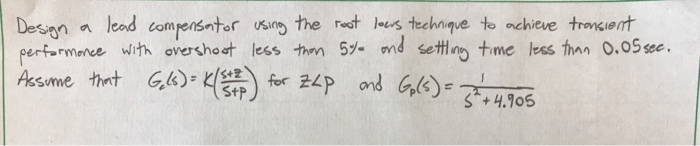 Design a lead compensator using the root locus technique to achieve transient
performance with overshoot less than 5% and settling time less than 0.05 sec.
Assume that G_c(s) = K(s+z/s+p) for z<p and G_p(s) = 1/s²+4.905